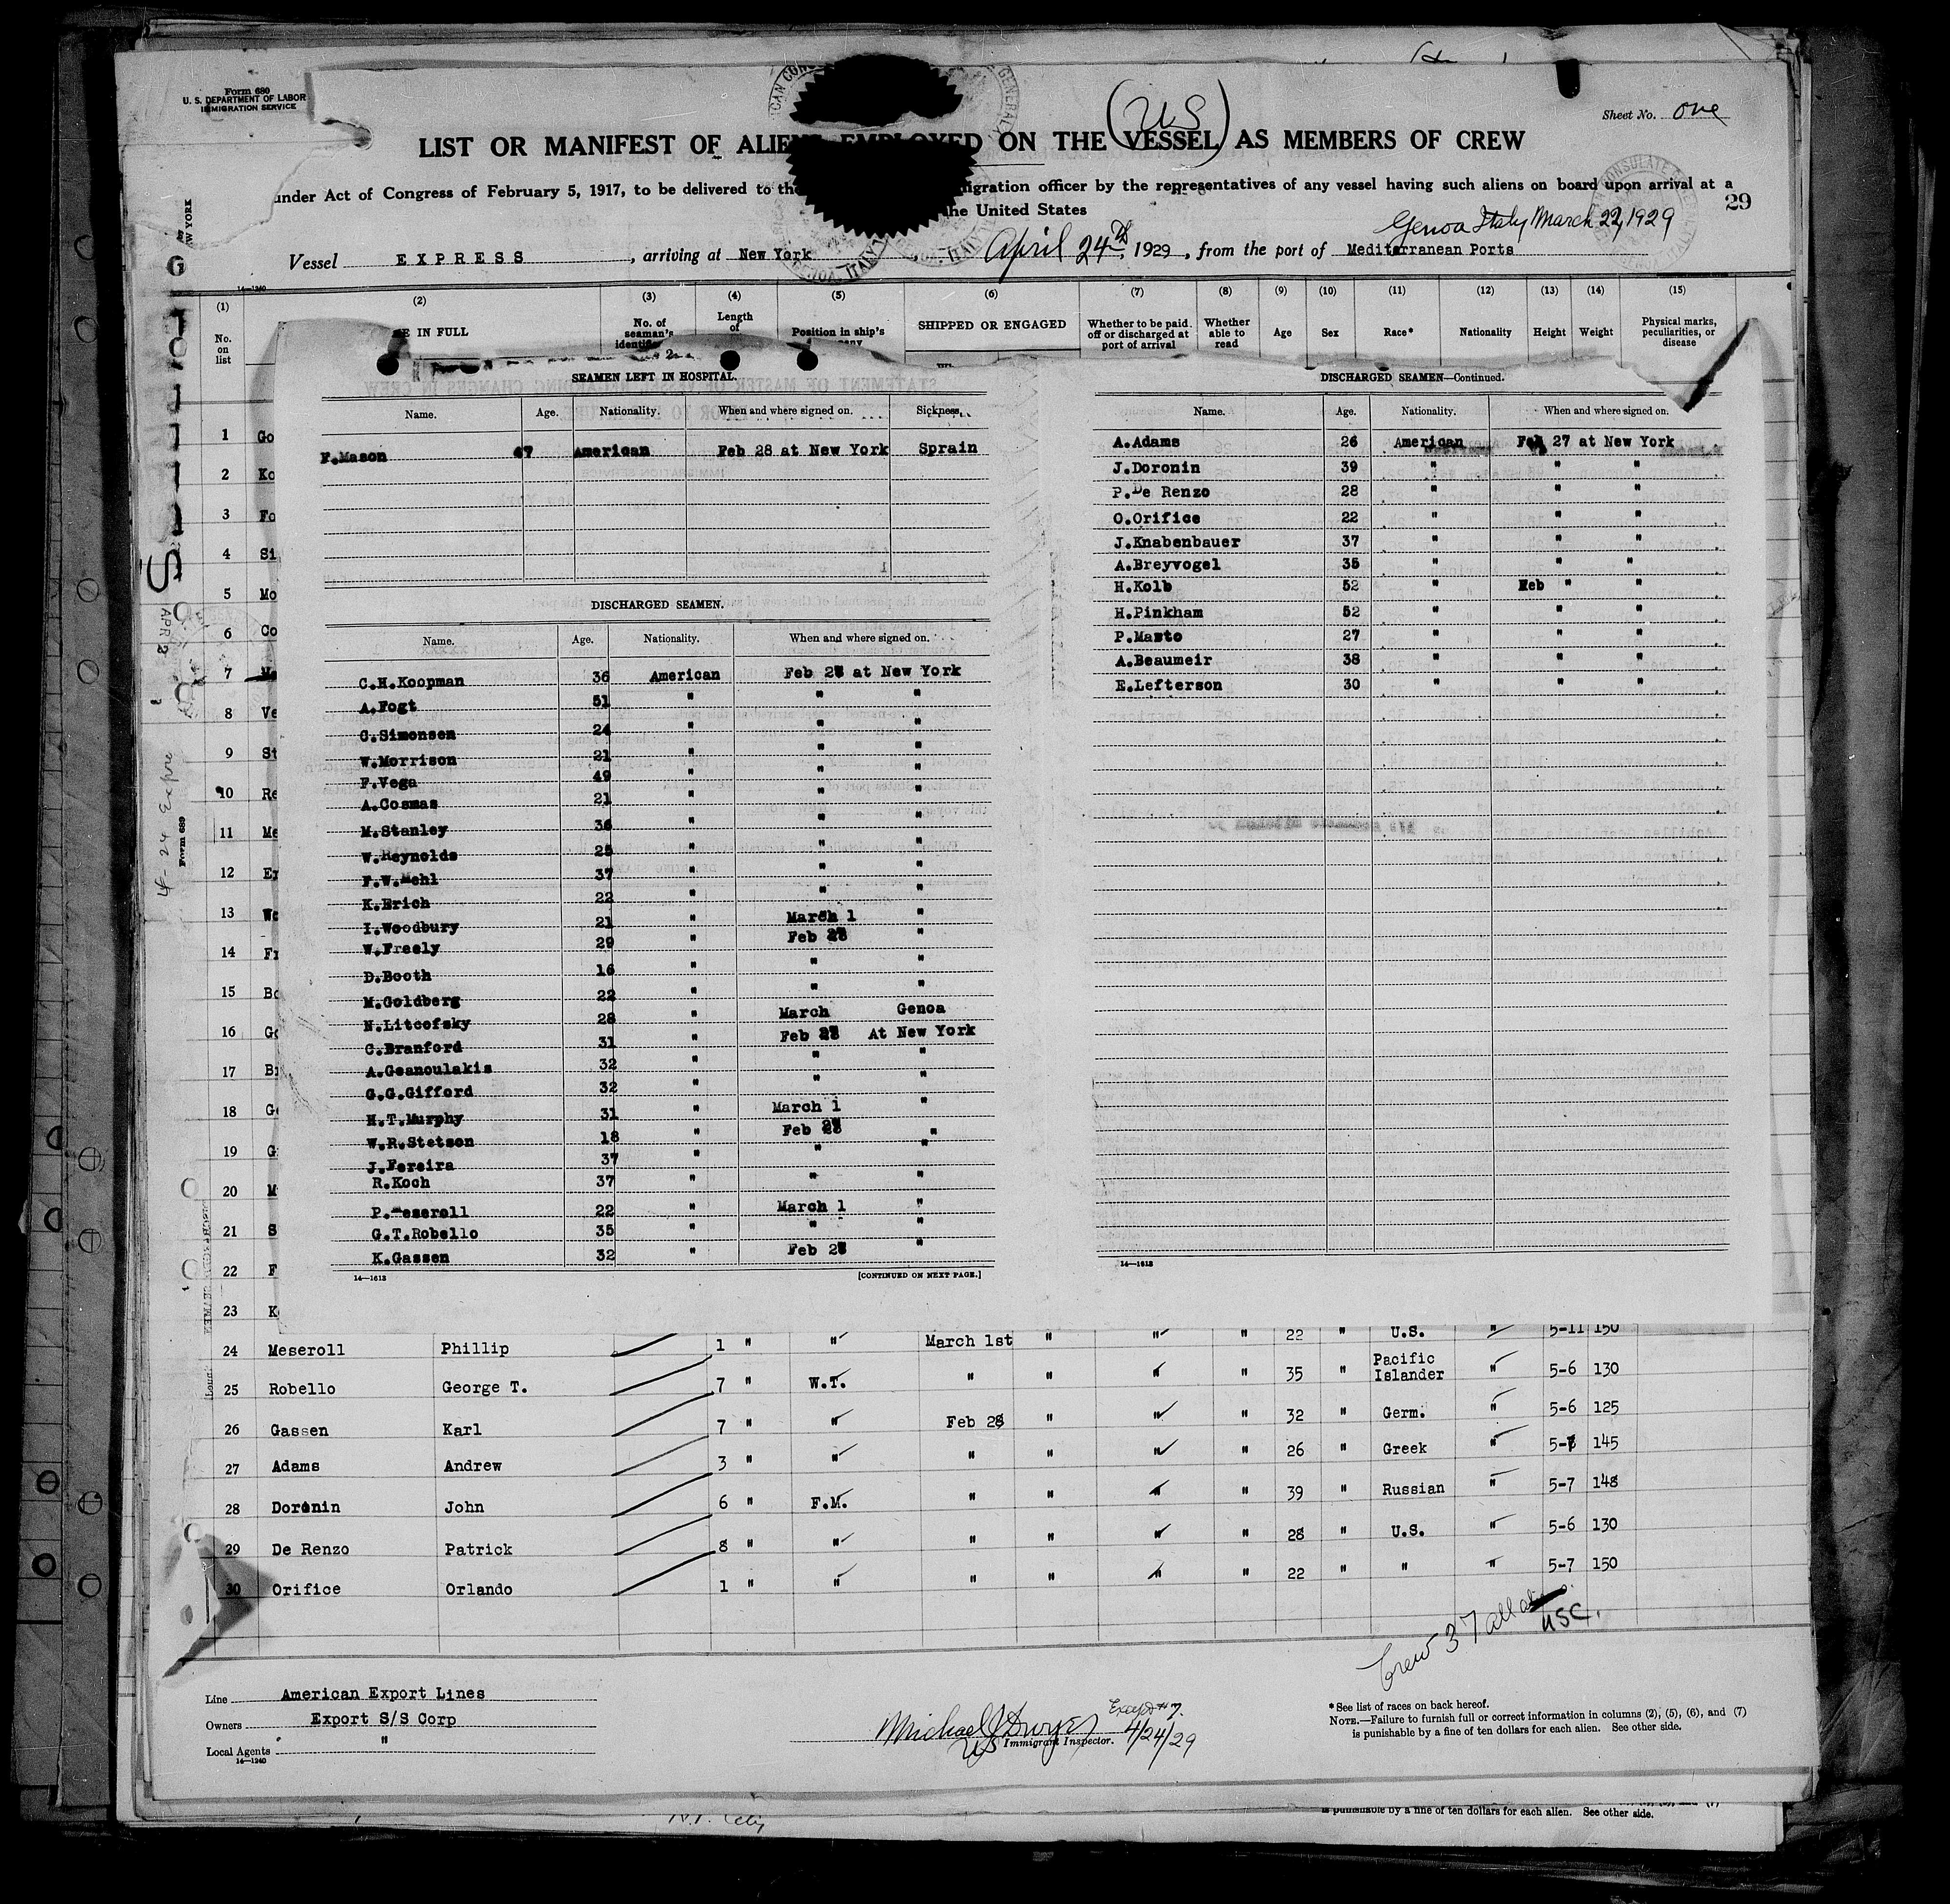 Form 680
U. S. DEPARTMENT OF LABOR
IMMIGRATION SERVICE
Sheet No. one
(US)
LIST OR MANIFEST OF ALIENS EMPLOYED ON THE VESSEL AS MEMBERS OF CREW
under Act of Congress of February 5, 1917, to be delivered to the immigration officer by the representatives of any vessel having such aliens on board upon arrival at a
the United States
29
Genoa Italy March 22, 1929
Vessel EXPRESS, arriving at New York, April 24th, 1929, from the port of Mediterranean Ports
14—1240
(1) (2) (3) (4) (5) (6) (7) (8) (9) (10) (11) (12) (13) (14) (15)
No. on list
E IN FULL
No. of seaman's
Length of
Position in ship's
SHIPPED OR ENGAGED
Whether to be paid off or discharged at port of arrival
Whether able to read
Age
Sex
Race*
Nationality
Height
Weight
Physical marks, peculiarities, or disease
SEAMEN LEFT IN HOSPITAL
Name. Age. Nationality. When and where signed on. Sickness.
F.Mason 47 American Feb 28 at New York Sprain
DISCHARGED SEAMEN.
Name. Age. Nationality. When and where signed on.
C.H.Koopman 36 American Feb 28 at New York
A.Fogt 51 " " "
C.Simonsen 24 " " "
W.Morrison 21 " " "
F.Vega 49 " " "
A.Cosmas 21 " " "
M.Stanley 36 " " "
W.Reynolds 25 " " "
F.W.Mehl 37 " " "
K.Erich 22 " " "
I.Woodbury 21 " March 1 "
W.Freely 29 " Feb 28 "
D.Booth 16 " " "
M.Goldberg 22 " " "
N.Litcofsky 28 " March Genoa
C.Branford 31 " Feb 28 At New York
A.Geanoulakis 32 " " "
G.G.Gifford 32 " " "
H.T.Murphy 31 " March 1 "
W.R.Stetson 18 " Feb 28 "
J.Fereira 37 " " "
R.Koch 37 " "
P.Meseroll 22 " March 1 "
G.T.Robello 35 " "
K.Gassen 32 " Feb 28 "
14—1613
[CONTINUED ON NEXT PAGE.]
DISCHARGED SEAMEN—Continued.
Name. Age. Nationality. When and where signed on.
A.Adams 26 American Feb 27 at New York
J.Doronin 39 " " "
P.De Renzo 28 " " "
O.Orifice 22 " " "
J.Knabenbauer 37 " " "
A.Breyvogel 35 " " "
H.Kolb 52 " Feb " "
H.Pinkham 52 " " "
P.Masto 27 " " "
A.Beaumeir 38 " " "
E.Lefterson 30 " " "
14—1613
1 Go
2 Ko
3 Fo
4 Si
5 Mo
6 Co
7
8 Ve
9 St
10 Re
11 Me
12 Er
13 Wo
14 Fr
15 Bo
16 Go
17 Br
18 Ge
19 G
20 M
21 S
22 F
23 K
24 Meseroll Phillip 1 " " March 1st " " " 22 " U.S. " 5-11 150
25 Robello George T. 7 " W.T. " " " " 35 " Pacific Islander " 5-6 130
26 Gassen Karl 7 " " Feb 28 " " " 32 " Germ. " 5-6 125
27 Adams Andrew 3 " " " " " " 26 " Greek " 5- 145
28 Doronin John 6 " F.M. " " " " 39 " Russian " 5-7 148
29 De Renzo Patrick 8 " " " " " " 28 " U.S. " 5-6 130
30 Orifice Orlando 1 " " " " " " 22 " " " 5-7 150
Crew 37 all
USC.
Line American Export Lines
Owners Export S/S Corp
Local Agents "
14—1240
Except #7.
Michael J Dwyer 4/24/29
US Immigrant Inspector.
*See list of races on back hereof.
NOTE.—Failure to furnish full or correct information in columns (2), (5), (6), and (7)
is punishable by a fine of ten dollars for each alien. See other side.
is punishable by a fine of ten dollars for each alien. See other side.
N.Y. City
4-24 Expre
Form 689